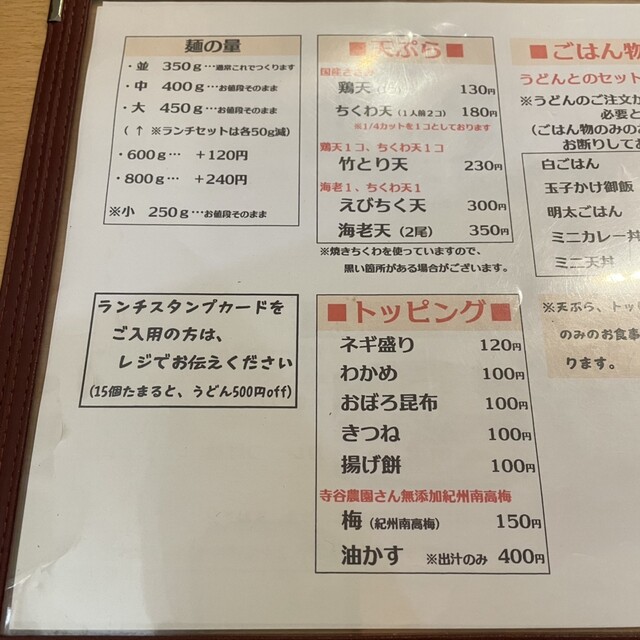 麺の量
・並 350g…通常これでつくります
・中 400g…お値段そのまま
・大 450g…お値段そのまま
(↑ ※ランチセットは各50g減)
・600g… +120円
・800g… +240円
※小 250g…お値段そのまま
ランチスタンプカードを
ご入用の方は、
レジでお伝えください
(15個たまると、うどん500円off)
■天ぷら■
国産ささみ
鶏天 130円
ちくわ天(1人前2コ) 180円
※1/4カットを1コとしております
鶏天1コ、ちくわ天1コ
竹とり天 230円
海老1、ちくわ天1
えびちく天 300円
海老天(2尾) 350円
※焼きちくわを使っていますので、
黒い箇所がある場合がございます。
■トッピング■
ネギ盛り 120円
わかめ 100円
おぼろ昆布 100円
きつね 100円
揚げ餅 100円
寺谷農園さん無添加紀州南高梅
梅(紀州南高梅) 150円
油かす ※出汁のみ 400円
■ごはん物
うどんとのセット
※うどんのご注文か
必要と
(ごはん物のみの
お断りしてお
白ごはん
玉子かけ御飯
明太ごはん
ミニカレー丼
ミニ天丼
※天ぷら、トッ
のみのお食事
ります。